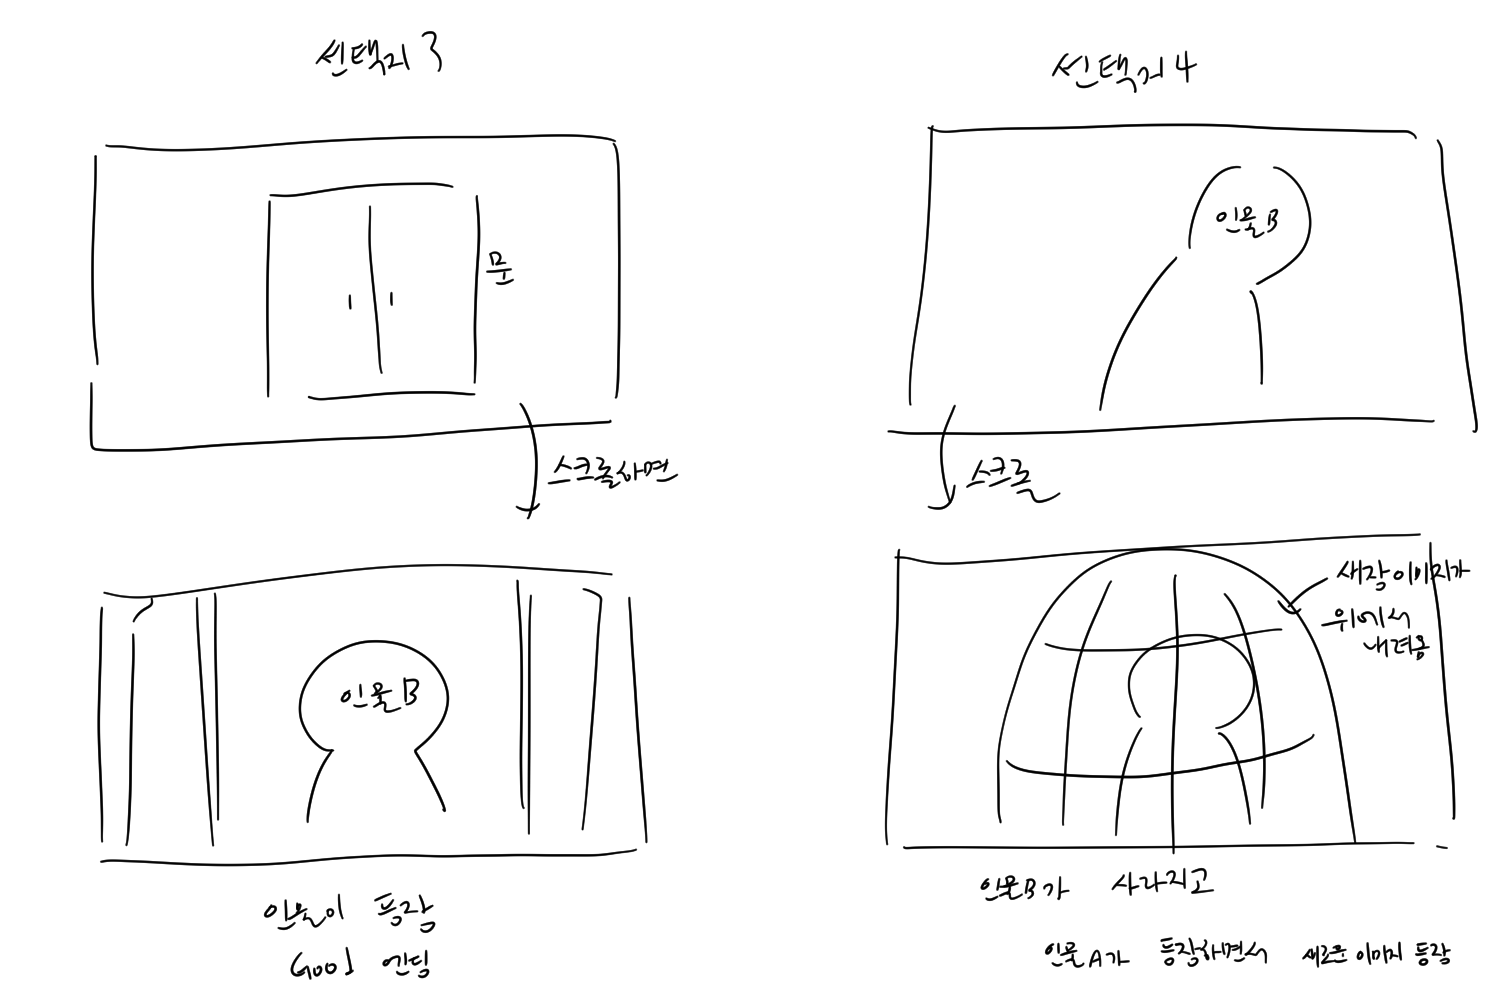 선택지 3
문
스크롤하면
인물B
인물이 등장
Good 엔딩
선택지 4
인물B
스크롤
새장 이미지가
위에서
내려옴
인물B가 사라지고
인물A가 등장하면서 새로운 이미지 등장